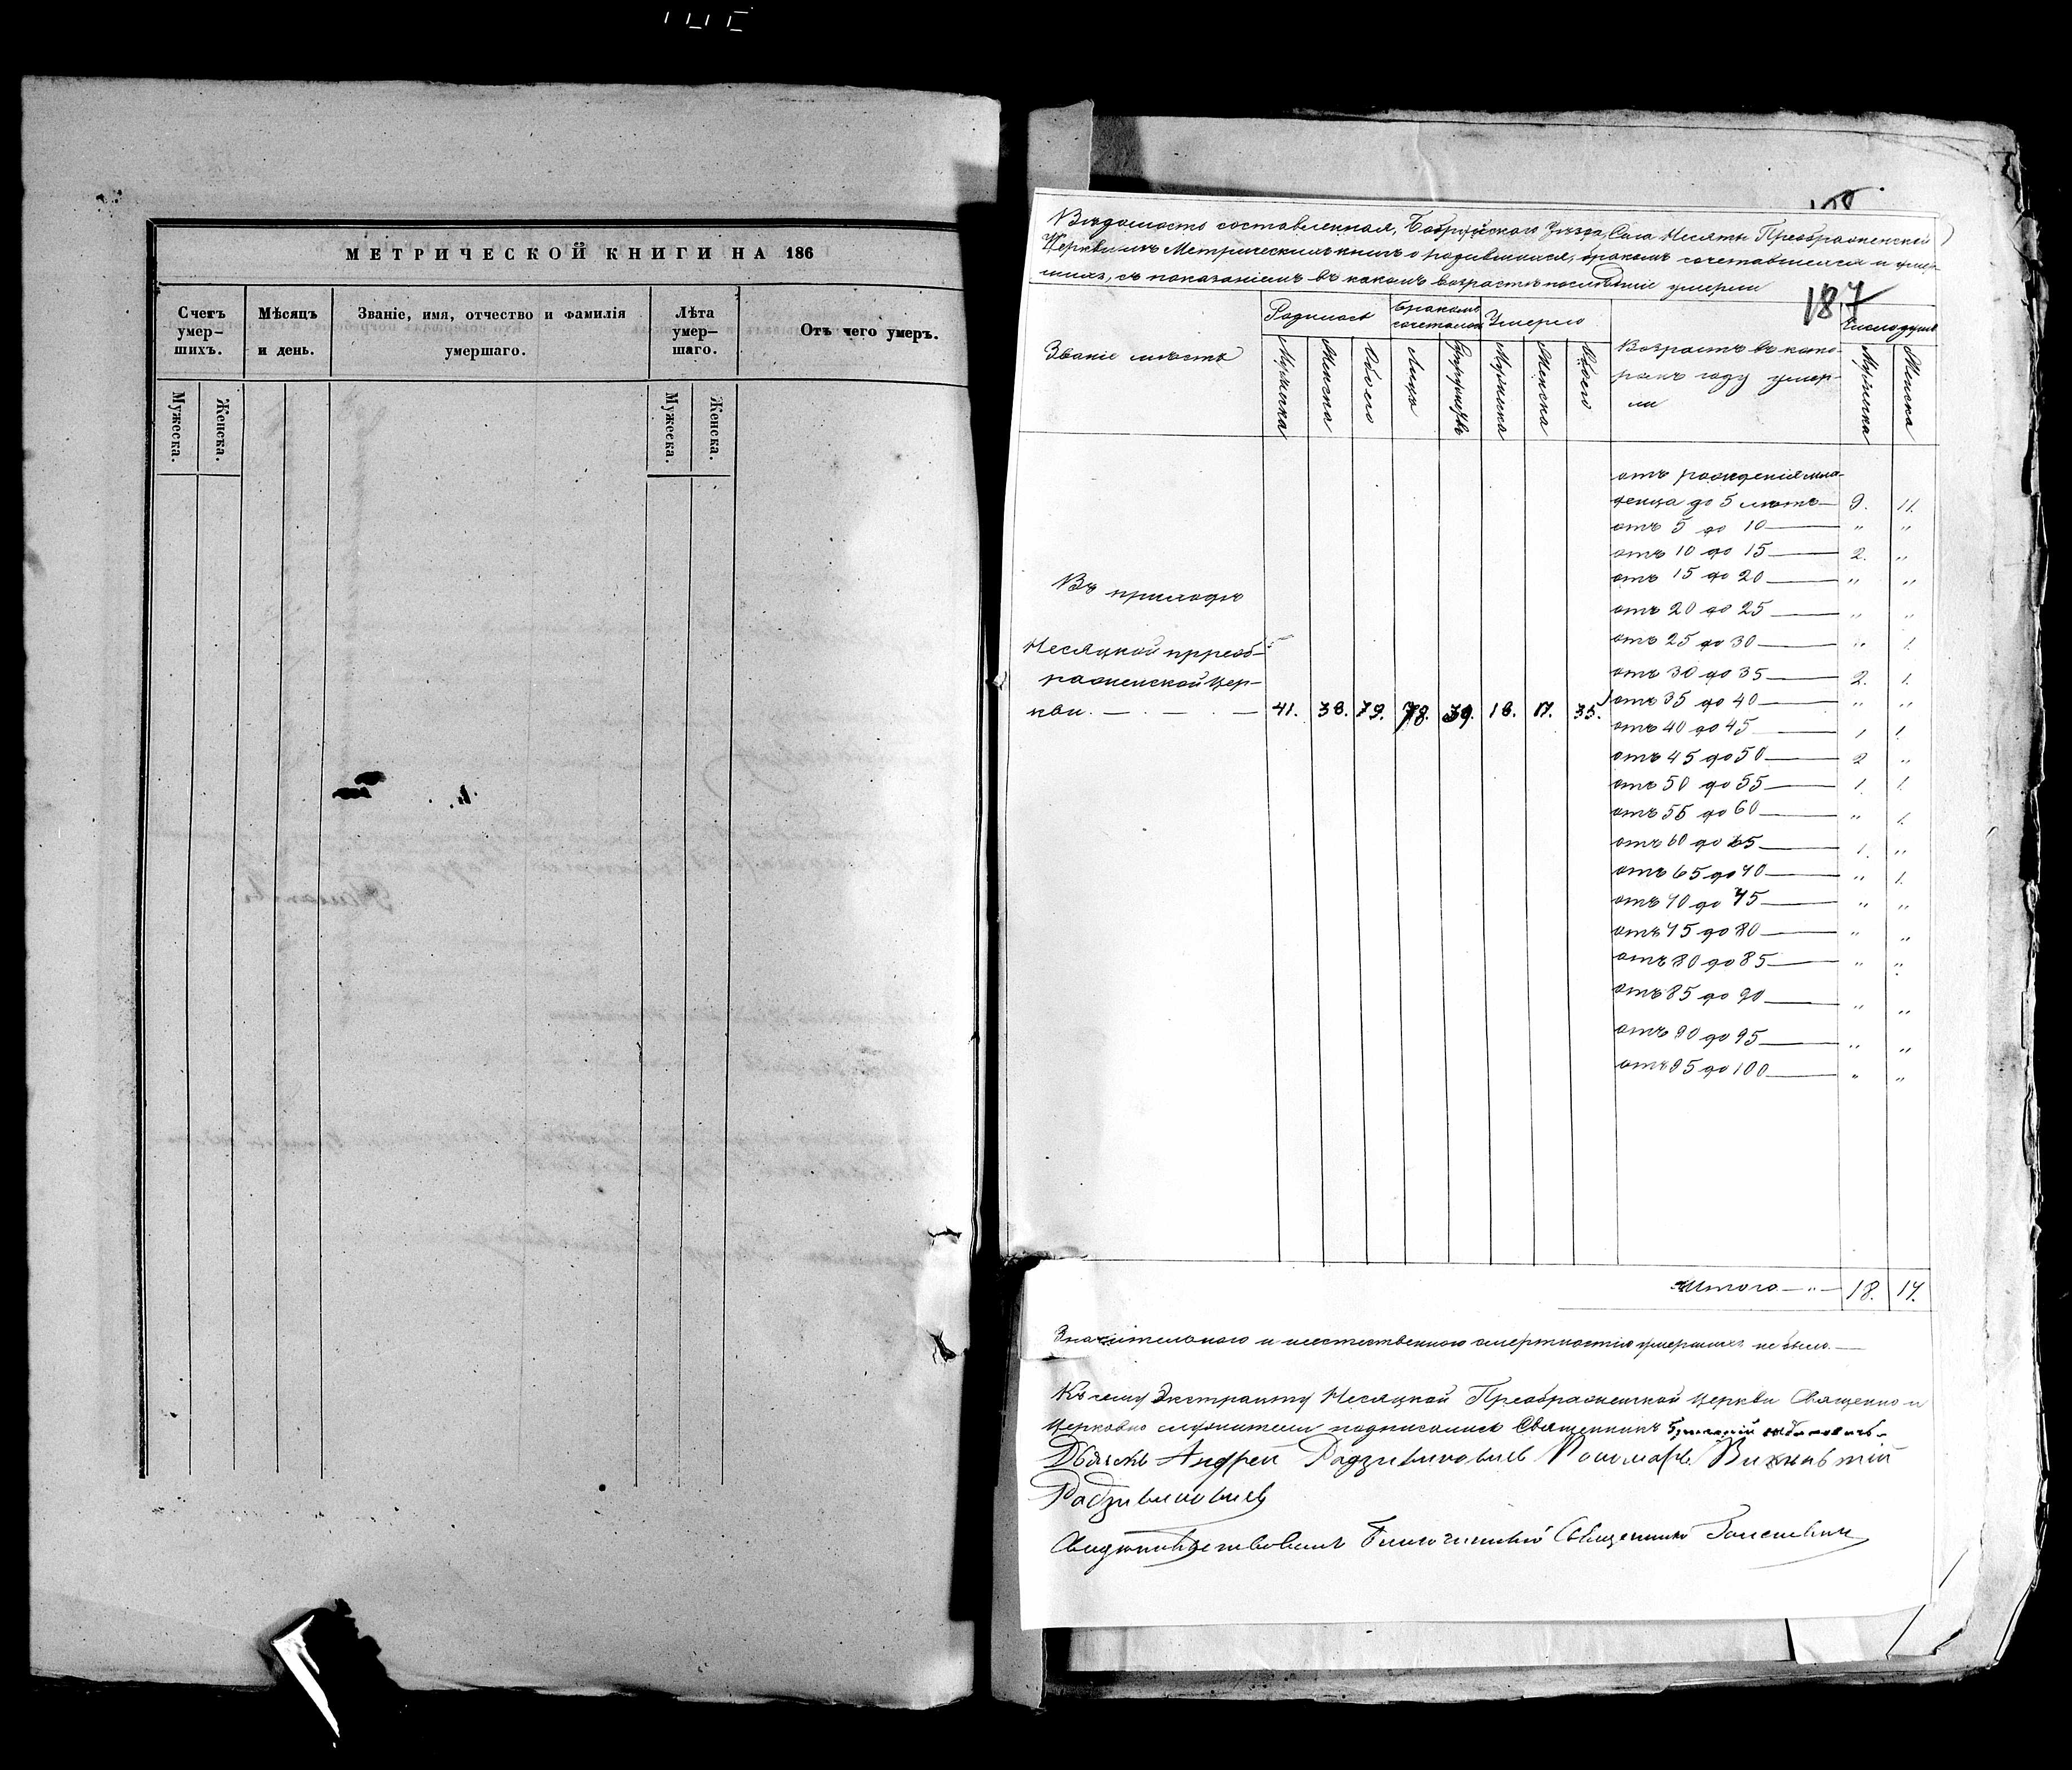 МЕТРИЧЕСКОЙ КНИГИ НА 186
Счетъ умер-шихъ.
Мѣсяцъ и день.
Званіе, имя, отчество и фамилія умершаго.
Лѣта умер-шаго.
Отъ чего умеръ.
Мужеска.
Женска.
Мужеска.
Женска.
187
Вѣдомость составленная, Бобруйскаго Уѣзда, Села Несяты Преображенской
Церкви изъ Метрическихъ книгъ о родившихся, бракомъ сочетавшихся и умер-
шихъ, съ показаніемъ въ какомъ возрастѣ послѣдніе умерли
Званіе мѣстъ
Родилось
Бракомъ сочеталось
Умерло
Возрастъ въ кото-
ромъ году умер-
ли
Число душъ
Мужеска
Женска
Обоего
Лицъ
Супружествъ
Мужеска
Женска
Обоего
Мужеска
Женска
отъ рожденія мла-
денца до 5 лѣтъ — 9. 11.
отъ 5 до 10 — " "
отъ 10 до 15 — 2. "
отъ 15 до 20 — " "
отъ 20 до 25 — " "
отъ 25 до 30 — " 1.
отъ 30 до 35 — 2. 1.
отъ 35 до 40 — " "
отъ 40 до 45 — 1 1.
отъ 45 до 50 — 2 "
отъ 50 до 55 — 1. 1.
отъ 55 до 60 — " 1.
отъ 60 до 65 — 1. "
отъ 65 до 70 — " 1.
отъ 70 до 75 — " "
отъ 75 до 80 — " "
отъ 80 до 85 — " "
отъ 85 до 90 — " "
отъ 90 до 95 — " "
отъ 95 до 100 — " "
Въ приходѣ
Несяцкой прреоб-
раженской Цер-
кви. — 41. 38. 79. 78. 39. 18. 17. 35.
Итого — " — 18. 17.
Значительною и неестественною смертностію умершихъ не было. —
Къ сему Экстракту Несяцкой Преображенской Церкви Священно и
Церковно служители подписались Священникъ
Дьячекъ Андрей Радзивиновичъ Пономарь Викентій
Радзивиновичъ
Свидѣтельствовалъ Благочинный Священникъ